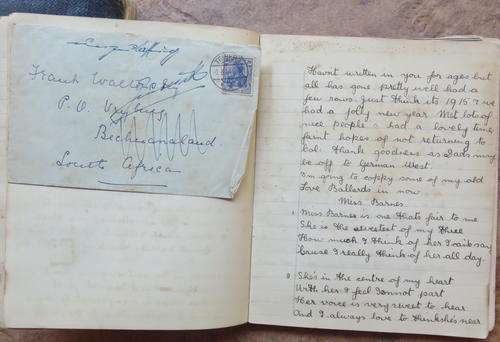 Frank
P.O.
Bechuanaland.
South Africa
Havnt written in you for ages but
all has gone pretty well had a
few rows. Just think its 1915 & we
had a jolly new year. Met lots of
nice people & had a lovely time
faint hopes of not returning to
Col. thank goodness as Dads may
be off to German West
I'm going to coppy some of my old
Love Ballards in now.
Miss Barnes
1. Miss Barnes is one thats fair to me
She is the sweetest of my three
How much I think of her I cant say
Cause I really think of her all day.
She's in the centre of my heart
With her I feel I cannot part
Her voice is very sweet to hear
And I always love to think she's near